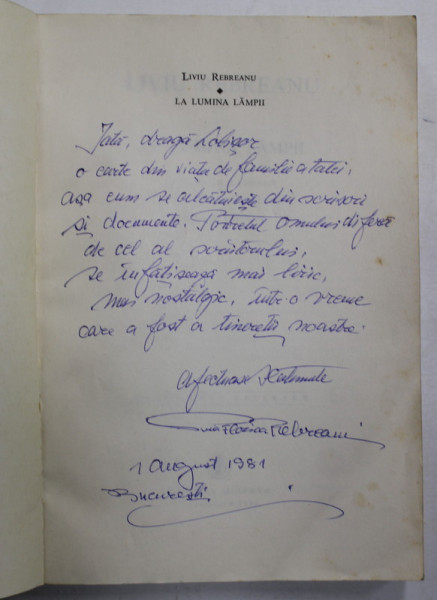 LIVIU REBREANU
◆
LA LUMINA LĂMPII
Iată, dragă
o carte din viața de familie a tatei,
așa cum se alcătuiește din scrisori
și documente. Portretul omului diferă
de cel al scriitorului,
se înfățișează mai liric,
mai nostalgic, într-o vreme
care a fost a tinereții noastre.
Afectuos
Puia Florica Rebreanu
1 august 1981
București